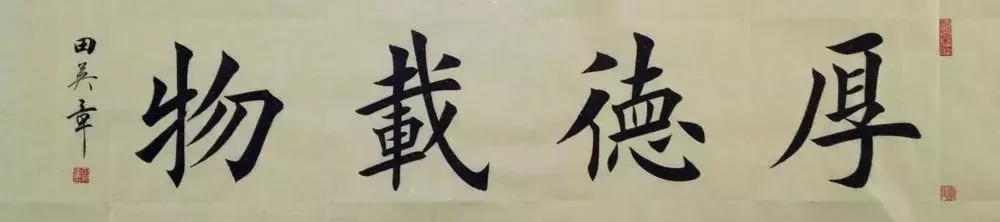 厚德載物
田英章